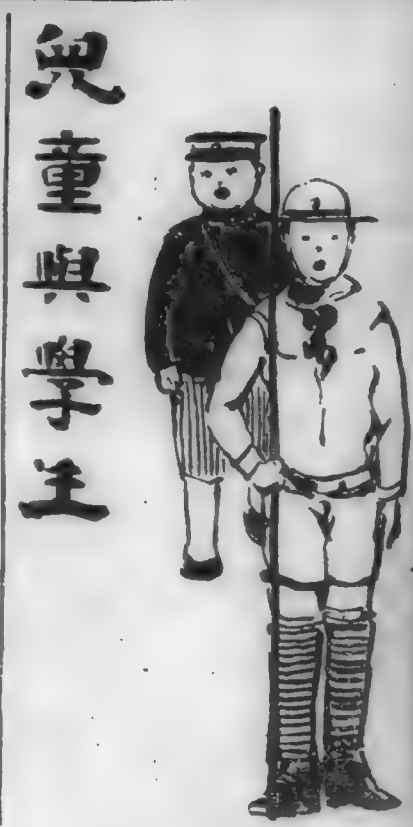 兒童與學生